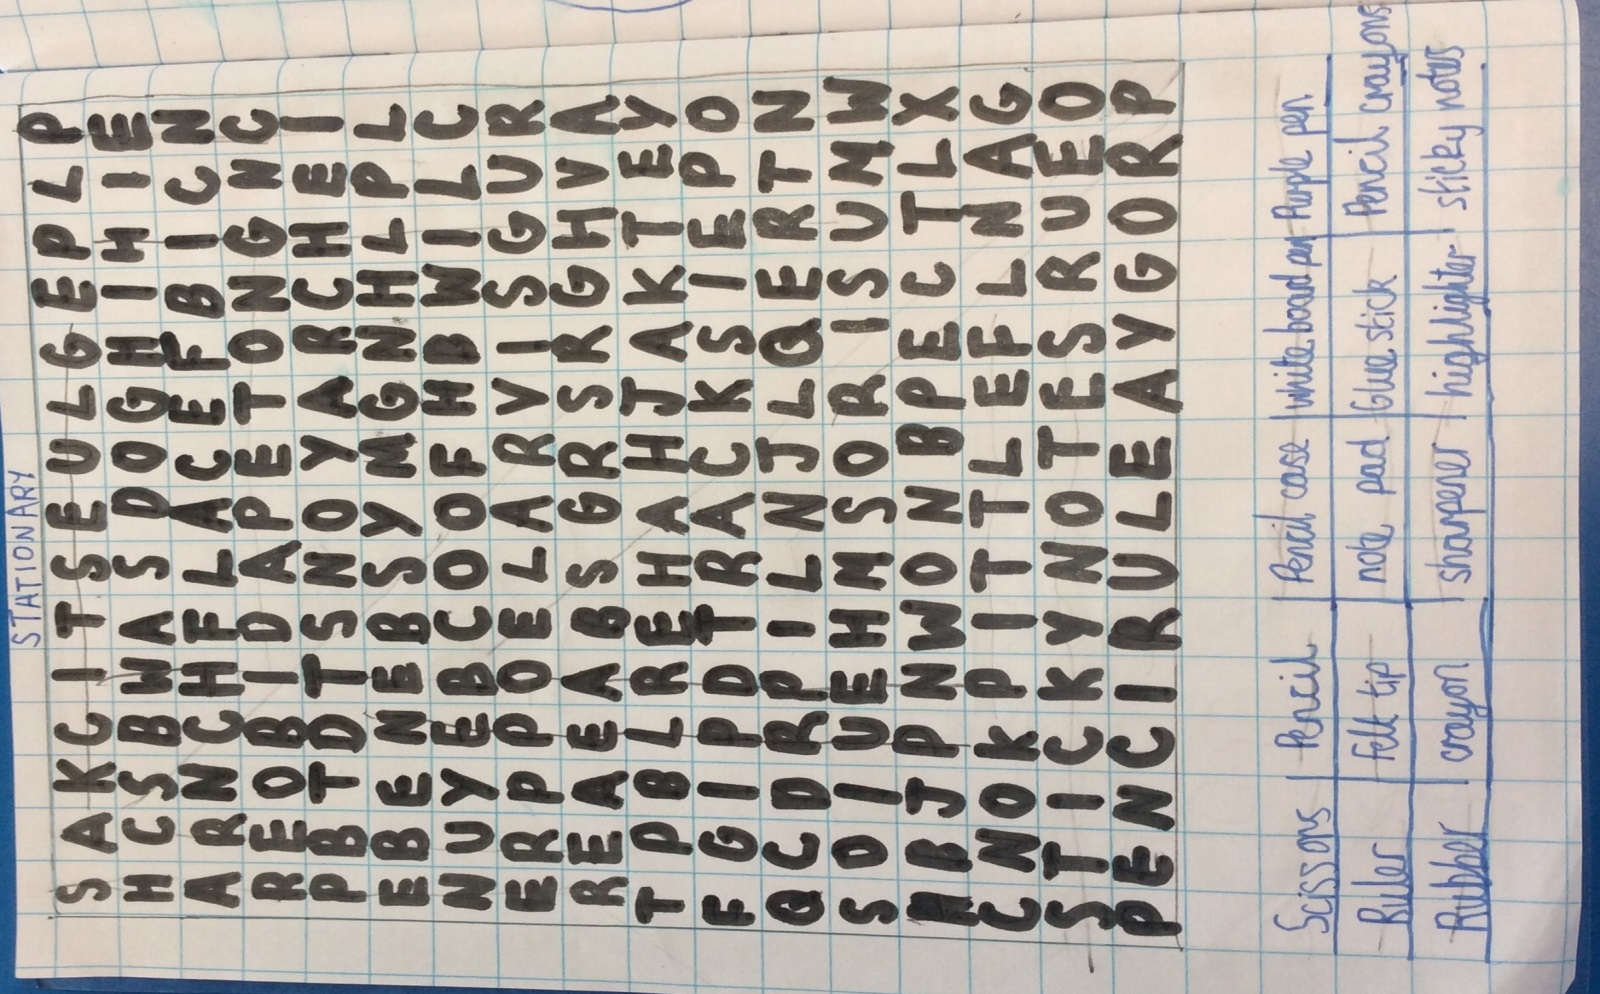 STATIONARY
S A K C I T S E U L G E P L P
H C S B W A S D O G H I H I E
A R N C H F L A C E F B I C N
R E O B I D A P E T O N G N C
P B T D T S N O Y A R C H E I
E B E N E B S Y M G N H L P L
N U Y E B C O O F H B W I L C
E R P P O E L A R V I S G U R
R E A E A B S G R S R G H V A
T P B L R E H A H J A K T E Y
F G I P D T R A C K S I E P O
Q C D R P I L N J L Q E R T N
S D I U E H M S O R I S U M W
R B J P N W O N B P E C T L X
C N O K P I T T L E F L N A G
S T I C K Y N O T E S R U E O
P E N C I R U L E A Y G O R P
Scissors Pencil Pencil case white board pen Purple pen
Ruler felt tip note pad Glue stick Pencil crayons
Rubber crayon sharpener highlighter sticky notes